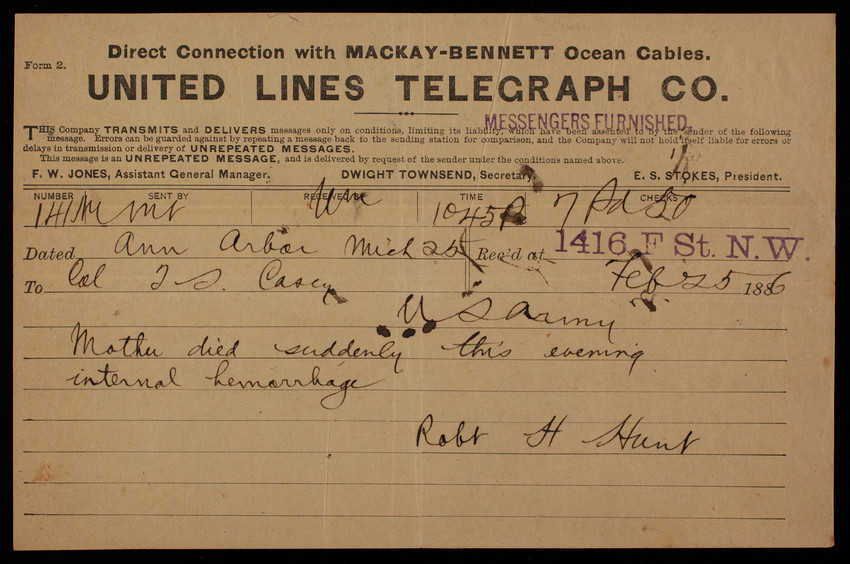 Direct Connection with MACKAY-BENNETT Ocean Cables.
Form 2.
UNITED LINES TELEGRAPH CO.
MESSENGERS FURNISHED.
THIS Company TRANSMITS and DELIVERS messages only on conditions, limiting its liability, which have been assented to by the sender of the following
message. Errors can be guarded against by repeating a message back to the sending station for comparison, and the Company will not hold itself liable for errors or
delays in transmission or delivery of UNREPEATED MESSAGES.
This message is an UNREPEATED MESSAGE, and is delivered by request of the sender under the conditions named above.
F. W. JONES, Assistant General Manager. DWIGHT TOWNSEND, Secretary. E. S. STOKES, President.
NUMBER SENT BY RECEIVED BY TIME CHECKS
1045P 7 Pd 20
Dated Ann Arbor Mich 25 Rec'd at 1416 F St. N.W.
To Col T S. Casey Feb 25 1886
U S Army
Mother died suddenly this evening
internal hemorrhage
Robt H Hunt